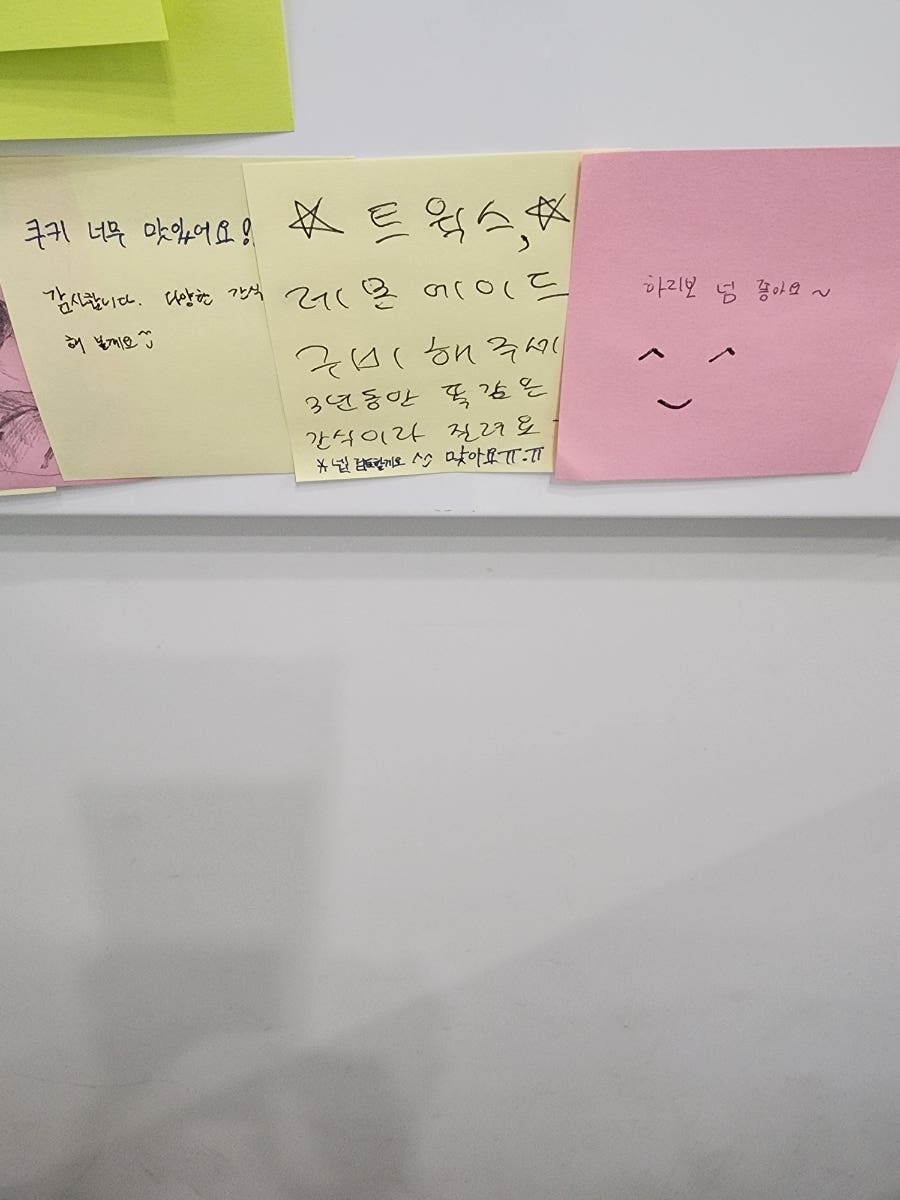 쿠키 너무 맛있어요!
감사합니다. 다양한 간식
해 볼게요^^
☆ 트윅스, ☆
레몬에이드
구비해주세
3년동안 똑같은
간식이라 질려요
* 넵 할게요 ^^ 맞아요ㅠ.ㅠ
하리보 넘 좋아요~